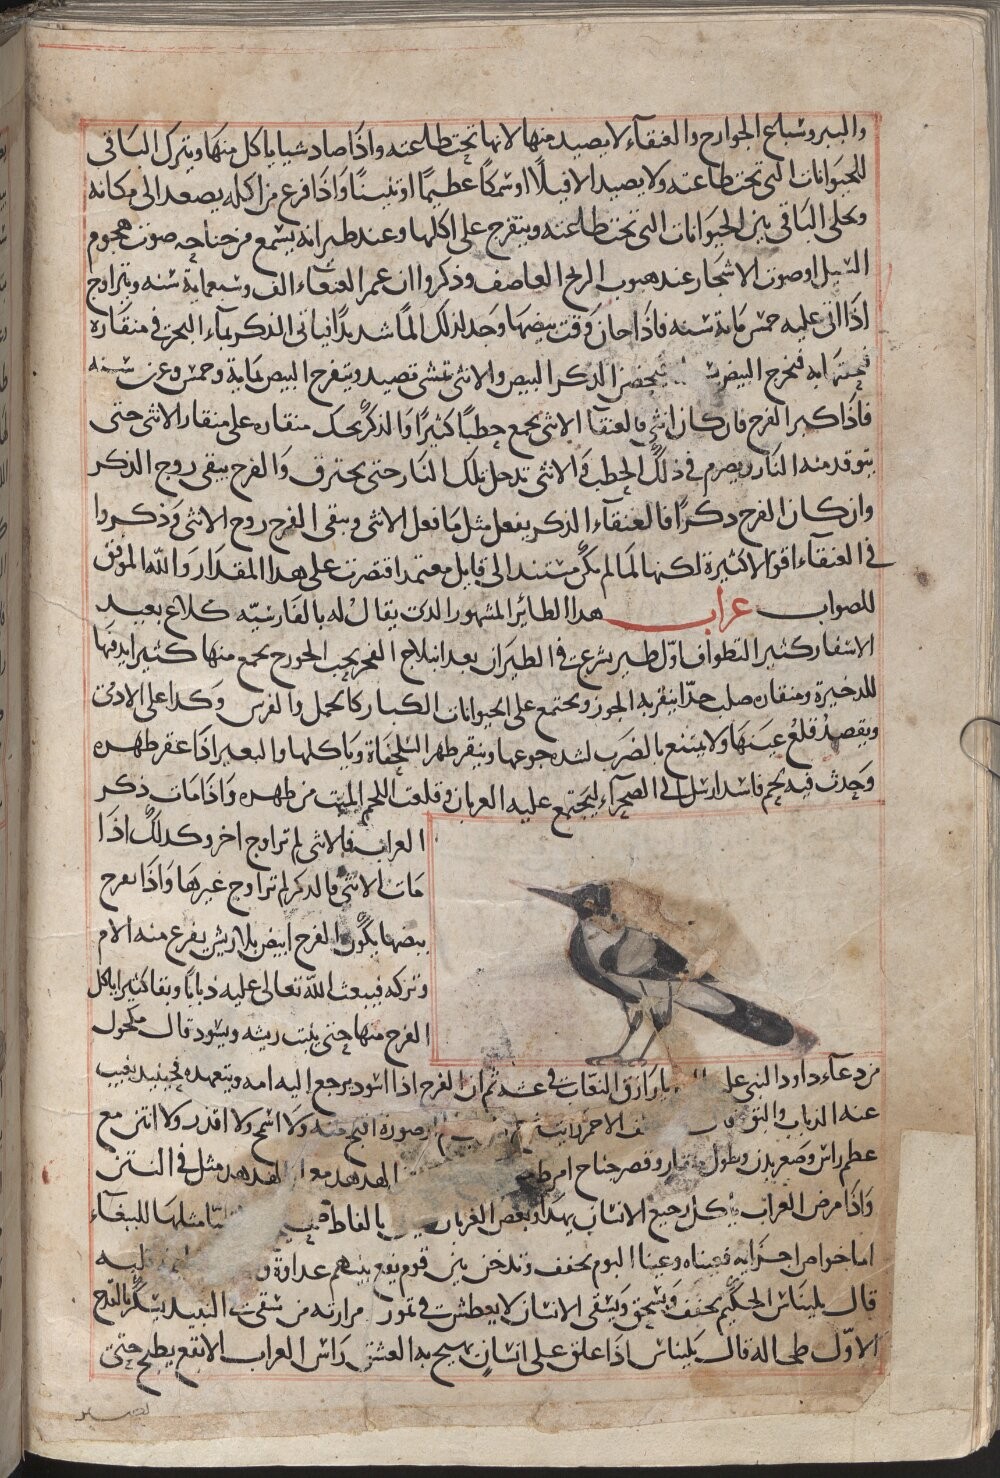 والببر وسباع الجوارح والعنقاء لا يصيد منها لانها تحت طاعته واذا صاد شيا ياكل منها ويترك الباقى
للحيوانات التى تحت طاعته ولا يصيد الا فيلا او سمكا عظيما او تنينا واذا فرغ من اكله يصعد الى مكانه
ويخلى الباقى بين الحيوانات التى تحت طاعته ويتفرج على اكلها وعند طيرانه يسمع من جناحه صوت هجوم
السيل او صوت الاشجار عند هبوب الريح العاصف وذكروا ان عمر العنقاء الف وسبعماية سنه ويتزاوج
اذا اتى عليه خمس ماية سنه فاذا حان وقت بيضها وجد لذلك الما شديدا فياتى الذكر بماء البحر فى منقاره
البيض فيحضن الذكر البيض والانثى تمشى تصيد ويتفرج البيض لماية وخمس وعشرين سنه
فاذا كبر الفرخ فان كان انثى فالعنقاء الانثى يجمع حطبا كثيرا والذكر يحك منقاره على منقار الانثى حتى
يتوقد منه النار ويصرم فى ذلك الحطب والانثى تدخل تلك النار حتى يحترق والفرخ يبقى زوج الذكر
وان كان الفرخ ذكرا فالعنقاء الذكر يفعل مثل ما فعل الانثى ويبقى الفرخ زوج الانثى وذكروا
فى العنقاء اقوالا كثيرة لكنها لما لم يكن مستندا الى قايل معتمد اقتصرت على هذا المقدار والله الموفق
للصواب غراب هذا الطائر المشهور الذى يقال له بالفارسيه كلاغ بعيد
الاسفار كثير التطواف اول طير يشرع فى الطيران بعد انبلاج الفجر يحب الجوز ويجمع منها كثيرا يدفنها
للذخيرة ومنقاره صلب جدا ينقر به الجوز ويجتمع على الحيوانات الكبار كالجمل والفرس وكذا على الادمى
ويقصد قلع عينها ولا يمتنع بالضرب لشده جوعها وينقر ظهر السلحفاة وياكلها والبعير اذا عقر ظهره
وحدث فيه لحم فاسد ارسل الى الصحراء ليجتمع عليه الغربان فى قلعت اللحم الميت من ظهره واذا مات ذكر
الغراب فالانثى لم تزاوج اخر وكذلك اذا
مات الانثى فالذكر لم تزاوج غيرها واذا تفرخ
بيضها يكون الفرخ ابيض بلا ريش يفزع منه الام
وتركه فيبعث الله تعالى عليه ذبابا وبقا كثيرا ياكل
الفرخ منها حتى ينبت ريشه ويسود قال مكحول
من دعاء داود النبى يا رازق النعاب فى عشه ثم ان الفرخ اذا اسود يرجع اليه امه ويتعهده فحينيذ يغيب
عنه الذباب والبق الاحمر صورة اقبح منه ولا اسمج ولا اقذر ولا انتن مع
عظم راس وصغر بدن وطول منقار وقصر جناح الهدهد مع الهدهد مثل فى النتن
واذا مرض الغراب ياكل رجيع الانسان يهدا وبعض الغربان بالفاظ مثلها للببغاء
اما خواص اجزايه فعيناه وعينا البوم يجفف وتدخن بين قوم يقع بينهم عداوة
قال بليناس الحكيم يجفف ويسحق ويسقى الانسان لا يعطش فى تموز مرارته من سقى النبيذ يسكر بالقدح
الاول طحاله قال بليناس اذا علق على انسان يهيج به العشق راس الغراب الابقع يطبخ حتى